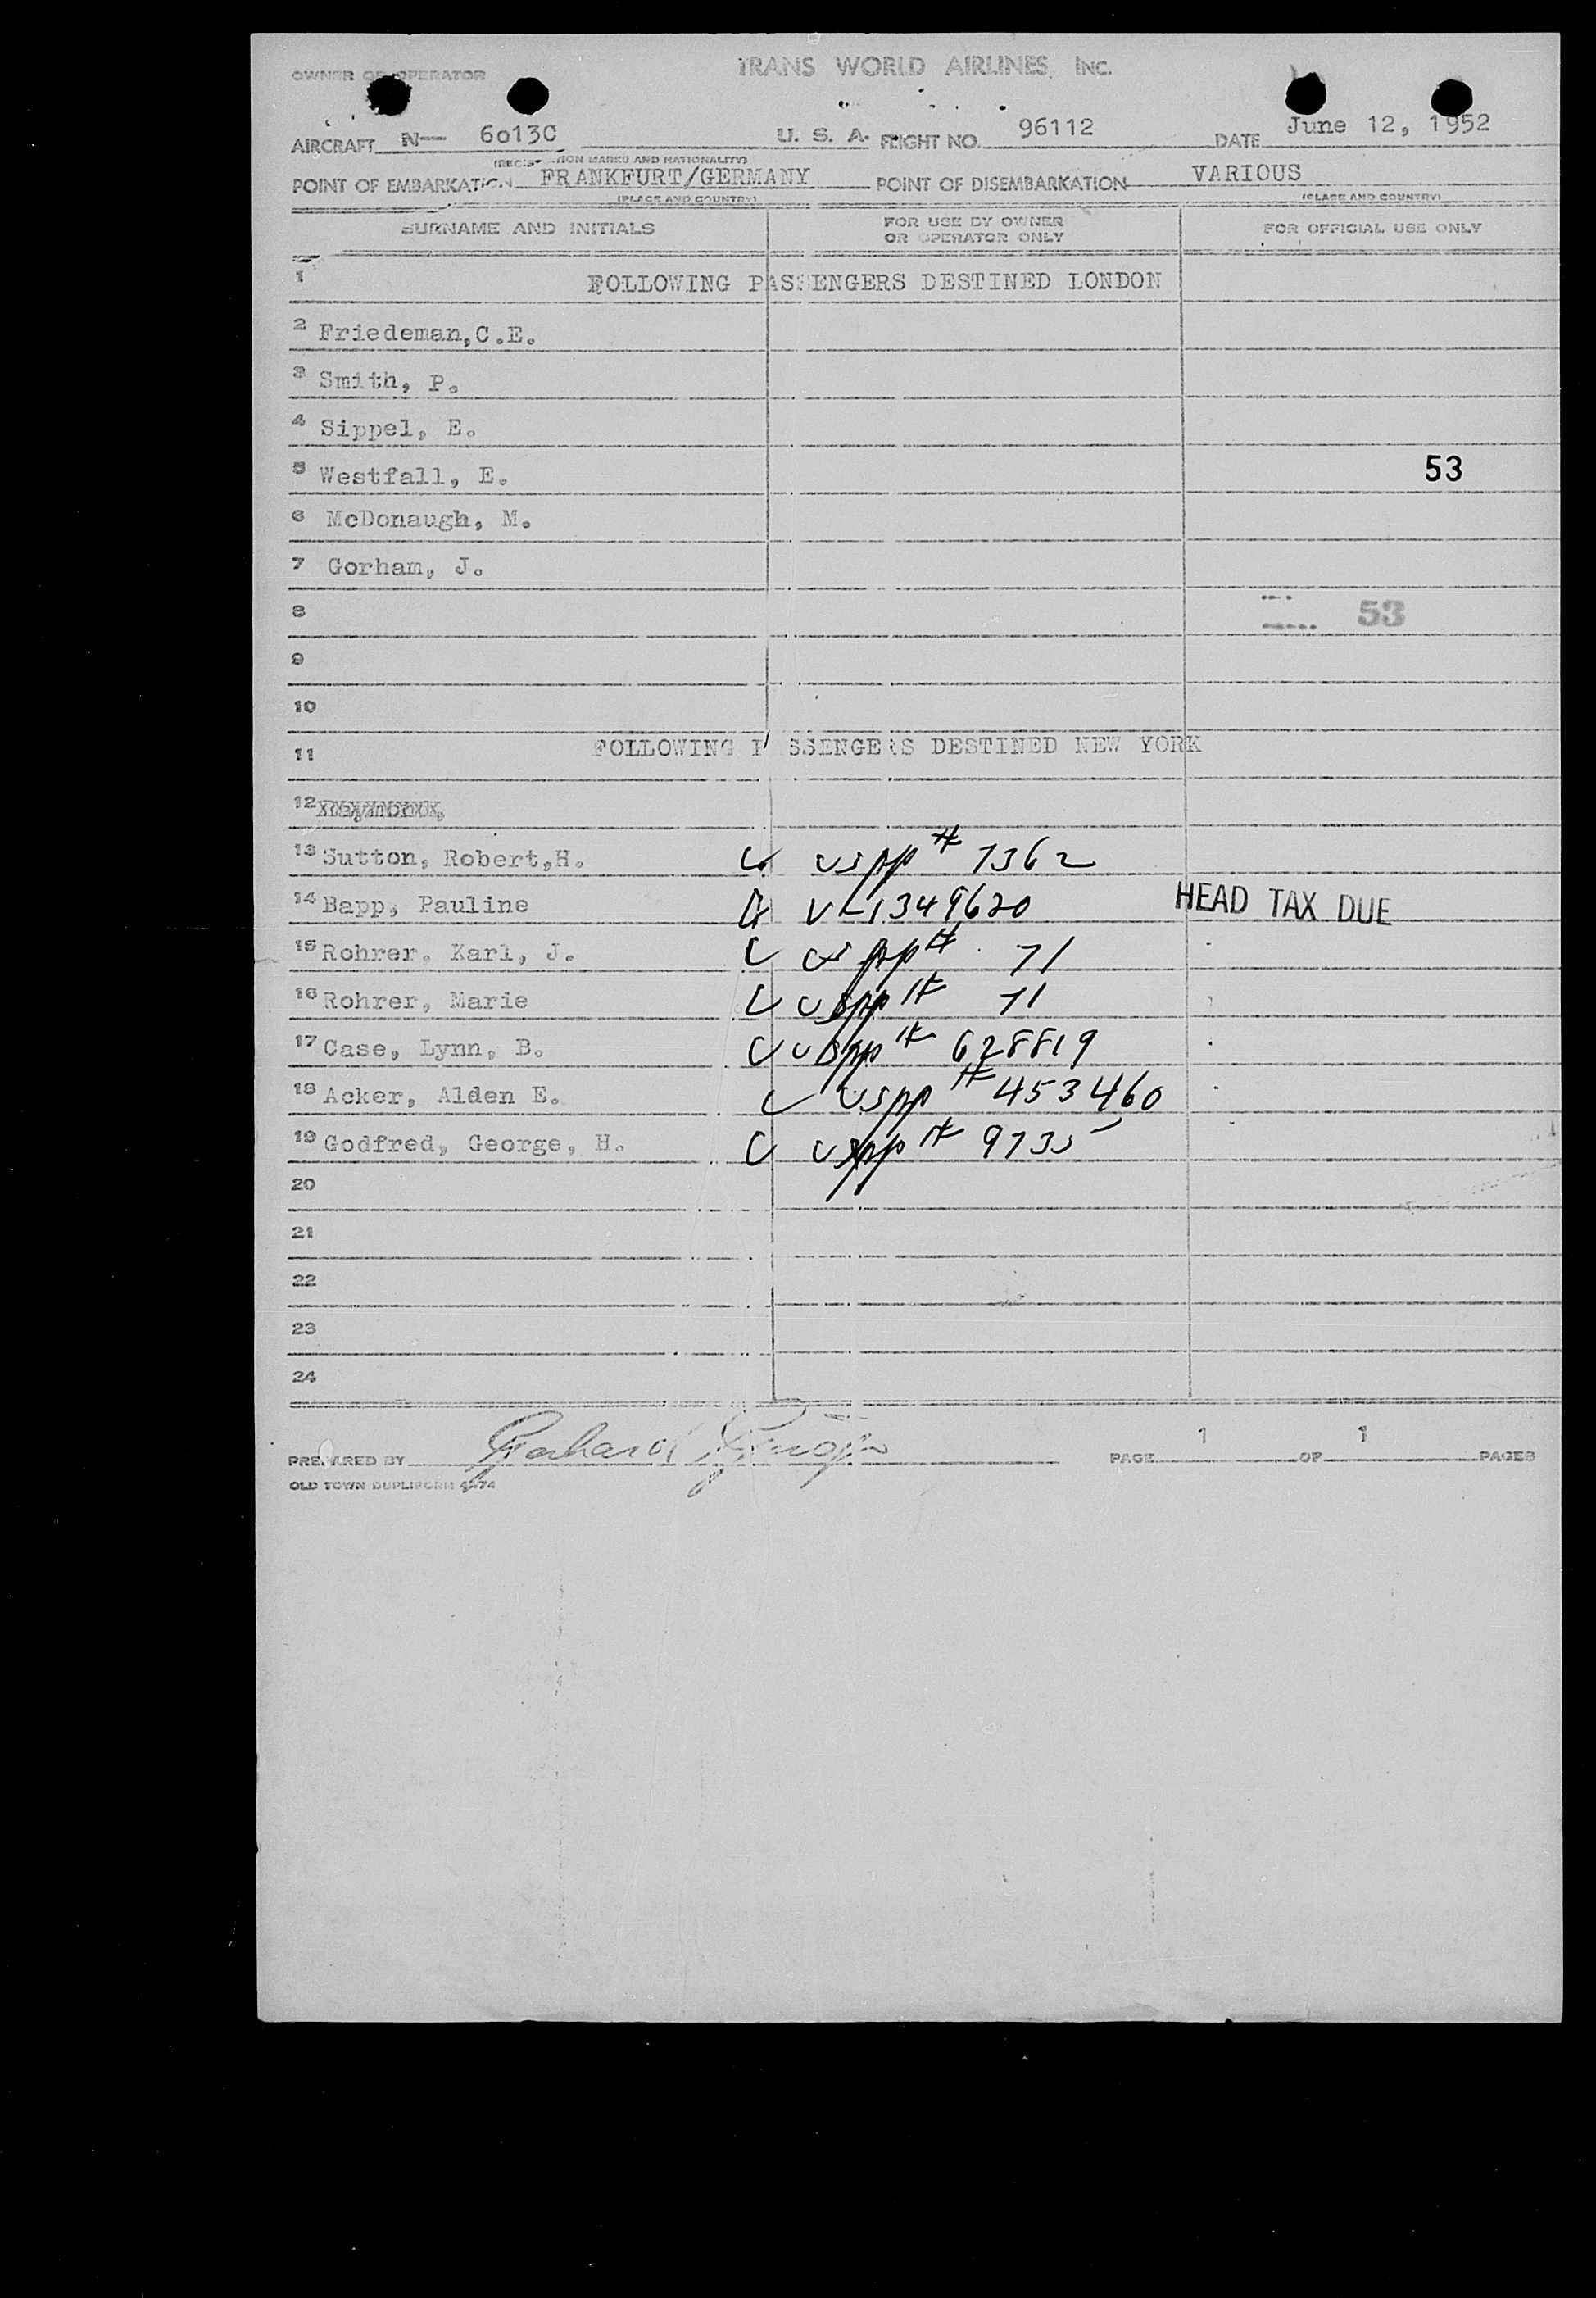 TRANS WORLD AIRLINES, INC.
OWNER OR OPERATOR
AIRCRAFT N— 6013C U. S. A. FLIGHT NO. 96112 DATE June 12, 1952
(REGISTRATION MARKS AND NATIONALITY)
POINT OF EMBARKATION FRANKFURT/GERMANY POINT OF DISEMBARKATION VARIOUS
(PLACE AND COUNTRY) (PLACE AND COUNTRY)
SURNAME AND INITIALS FOR USE BY OWNER OR OPERATOR ONLY FOR OFFICIAL USE ONLY
1 FOLLOWING PASSENGERS DESTINED LONDON
2 Friedeman,C.E.
3 Smith, P.
4 Sippel, E.
5 Westfall, E. 53
6 McDonaugh, M.
7 Gorham, J.
8 53
9
10
11 FOLLOWING PASSENGERS DESTINED NEW YORK
12
13 Sutton, Robert,H. C uspp # 7362
14 Bapp, Pauline A V-1349620 HEAD TAX DUE
15 Rohrer, Karl, J. C uspp # 71
16 Rohrer, Marie C uspp # 71
17 Case, Lynn, B. C uspp # 628819
18 Acker, Alden E. C uspp # 453460
19 Godfred, George, H. C uspp # 9735
20
21
22
23
24
PREPARED BY PAGE 1 OF 1 PAGES
OLD TOWN DUPLIFORM